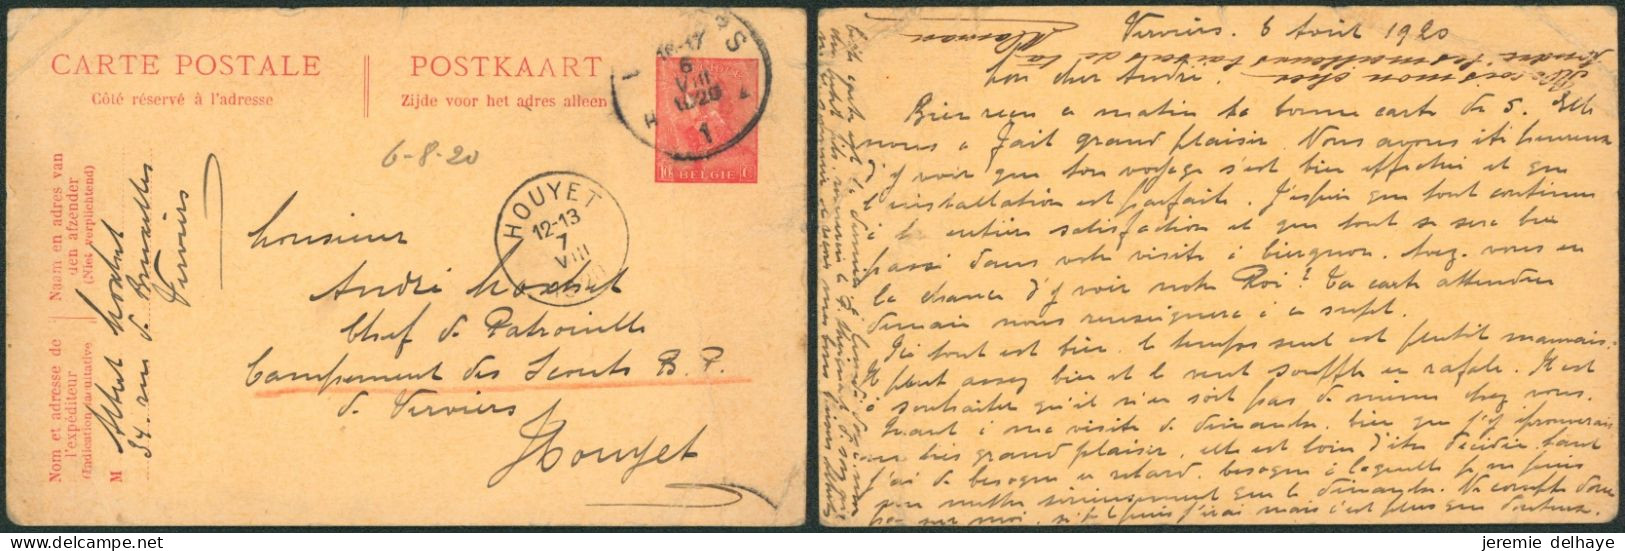 CARTE POSTALE
Côté réservé à l'adresse
POSTKAART
Zijde voor het adres alleen
10 BELGIE C.
16-17
6
VIII
1920
1
HOUYET
12-13
7
VIII
6-8-20
Naam en adres van
den afzender
(Niet verplichtend)
Nom et adresse de
l'expéditeur
(Indication facultative)
M
Albert
34. rue de Bruxelles
Verviers
Monsieur
André
Chef de Patrouille
Campement des Scouts B. P.
de Verviers
Houyet
Verviers. 6 Août 1920
Mon cher André.
Bien reçu ce matin ta bonne carte du 5. Elle
nous a fait grand plaisir. Nous avons été heureux
d'y voir que ton voyage s'est bien effectué et que
l'installation est parfaite. J'espère que tout continue
à l'entière satisfaction et que tout se sera bien
passé dans votre visite à Ciergnon. Avez-vous eu
la chance d'y voir notre Roi? Ta carte attendue
demain nous renseignera à ce sujet.
Ici tout est bien. le temps seul est plutôt mauvais.
Il pleut assez bien et le vent souffle en rafale. Il est
à souhaiter qu'il n'en soit pas de même chez vous.
Quant à ma visite de dimanche, bien que j'y éprouverais
un très grand plaisir, elle est loin d'être décidée. tant
j'ai de besogne en retard, besogne à laquelle je ne puis
me mettre sérieusement que le dimanche. Ne compte donc
pas sur moi. si je puis j'irai mais c'est plus que douteux.
jeremie delhaye